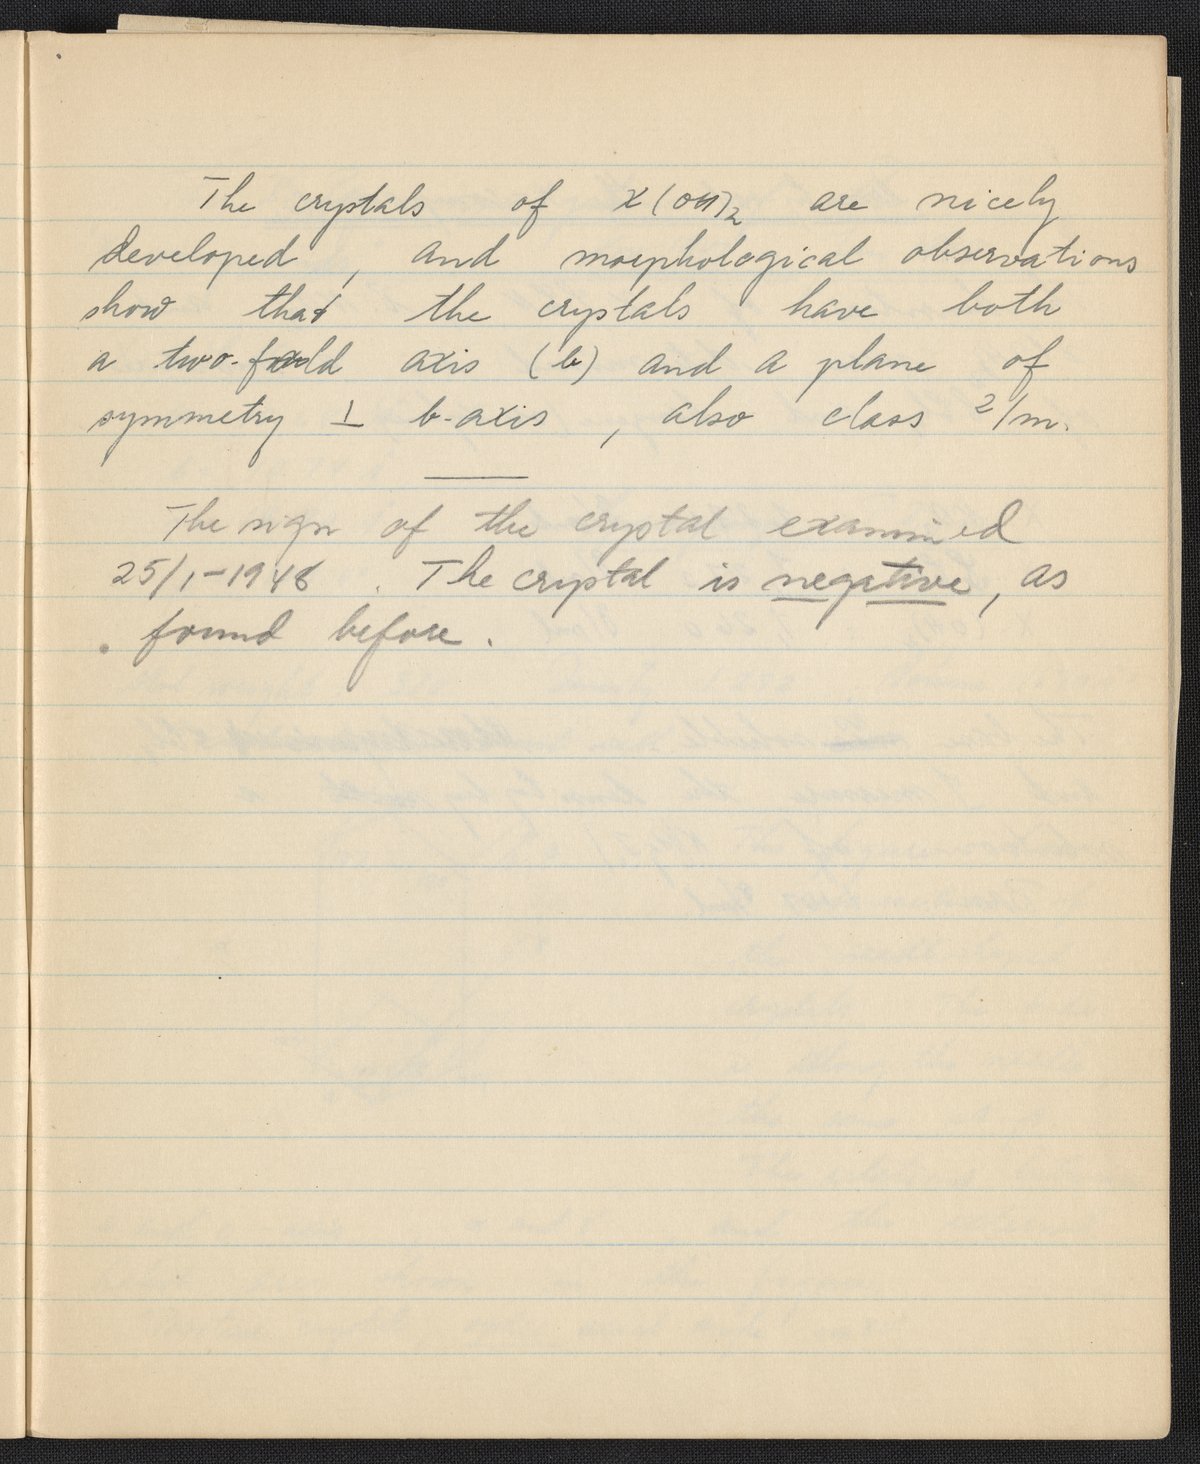 The crystals of X(OH)2 are nicely
developed, and morphological observations
show that the crystals have both
a two-fold axis (b) and a plane of
symmetry ⊥ b-axis, also class 2/m.
The sign of the crystal examined
25/1-1948. The crystal is negative, as
found before.